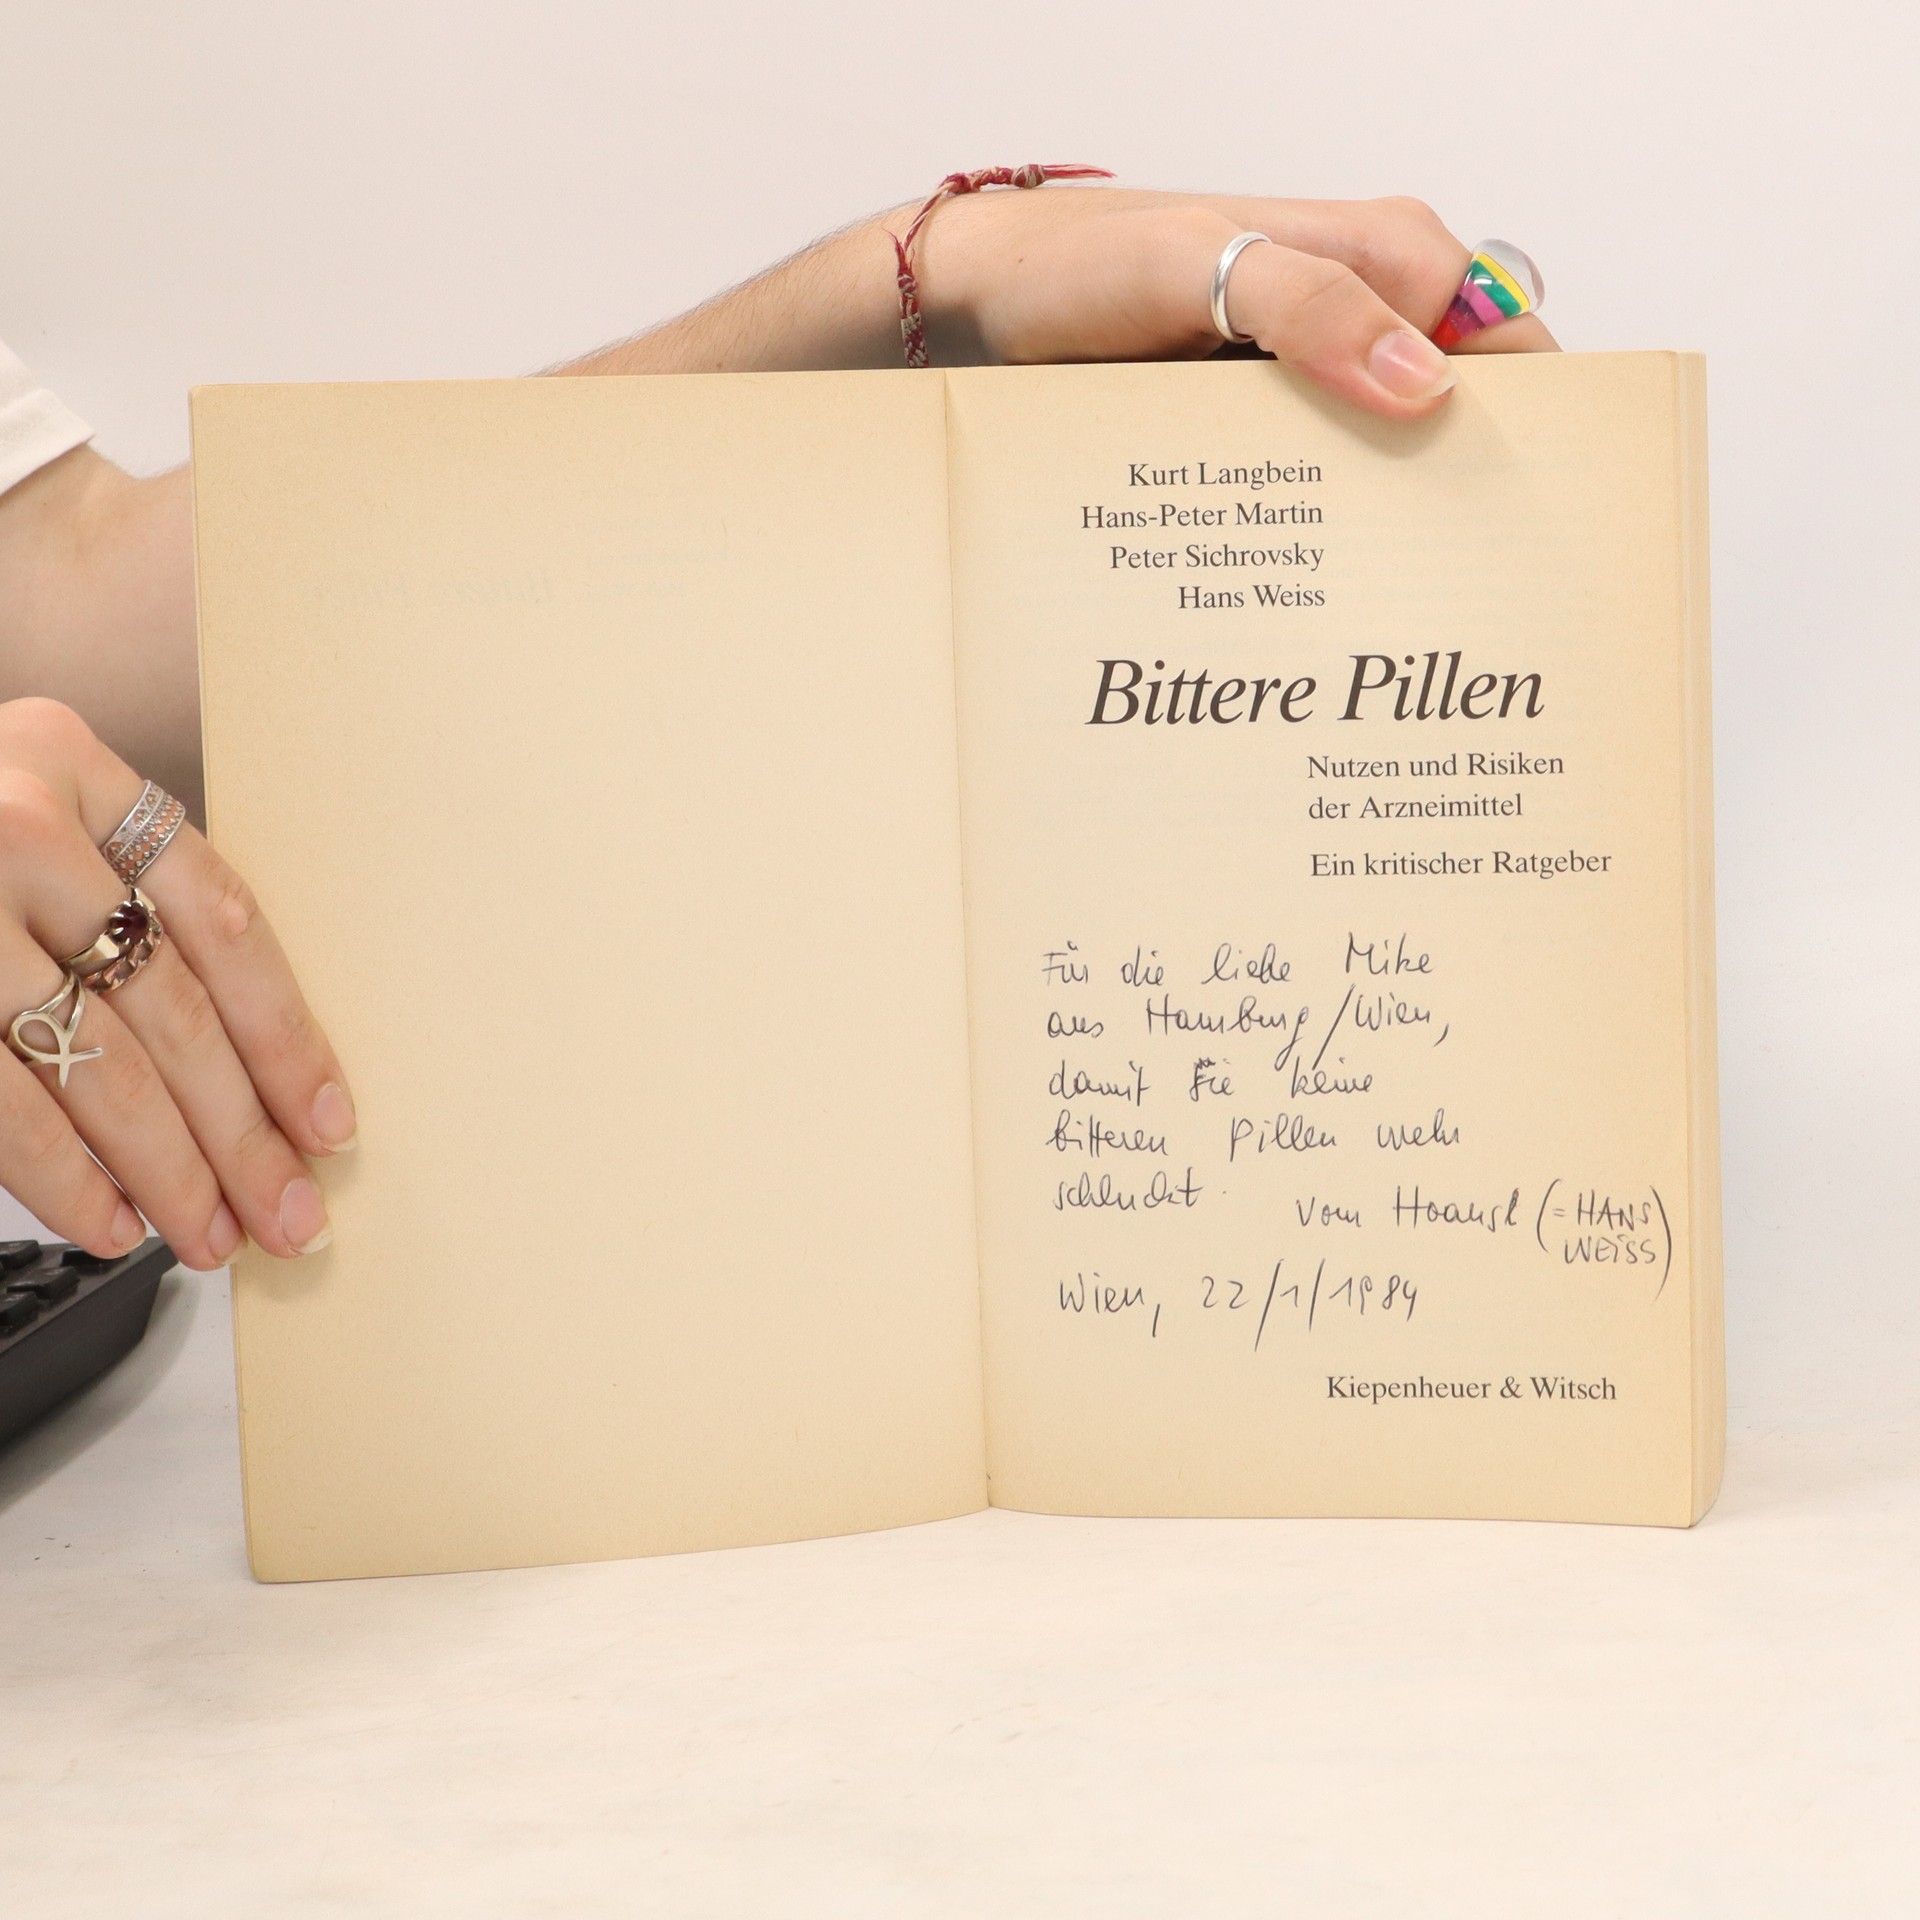 Kurt Langbein
Hans-Peter Martin
Peter Sichrovsky
Hans Weiss
Bittere Pillen
Nutzen und Risiken
der Arzneimittel
Ein kritischer Ratgeber
Für die liebe Mike
aus Hamburg/Wien,
damit sie keine
bitteren Pillen mehr
schluckt.
vom Hoansl (= HANS
WEISS)
Wien, 22/1/1984
Kiepenheuer & Witsch